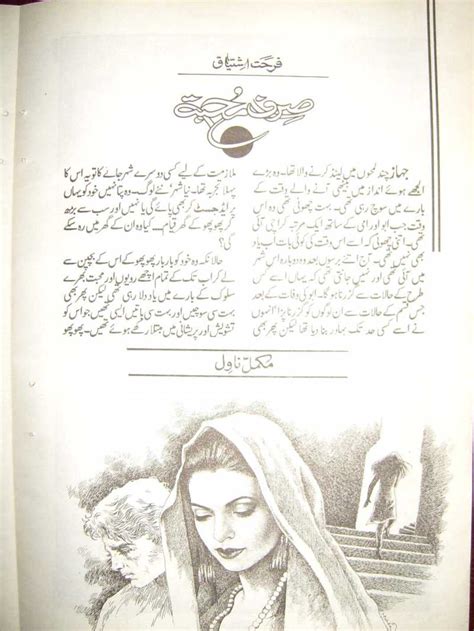 فرحت اشتیاق
صرف محبت
جہاز چند لمحوں میں لینڈ کرنے والا تھا۔ وہ بڑے
الجھے ہوئے انداز میں بیٹھی آنے والے وقت کے
بارے میں سوچ رہی تھی۔ بہت چھوٹی تھی وہ اس
وقت جب ابو اور امی کے ساتھ ایک مرتبہ کراچی آئی
تھی۔ اتنی چھوٹی کہ اسے اس وقت کی کوئی بات اب یاد
نہیں تھی۔ آج اتنے برسوں بعد وہ دوبارہ اس شہر
میں آئی تھی اور نہیں جانتی تھی کہ یہاں اسے کس
طرح کے حالات سے گزرنا ہو گا۔ ابو کی وفات کے بعد
جس قسم کے حالات سے ان لوگوں کو گزرنا پڑا انہوں
نے اسے کسی حد تک بہادر بنا دیا تھا لیکن پھر بھی
ملازمت کے لیے کسی دوسرے شہر جانے کا تو یہ اس کا
پہلا تجربہ تھا۔ نیا شہر نئے لوگ۔ وہ پتا نہیں خود کو یہاں
ایڈجسٹ کر بھی پائے گی یا نہیں اور سب سے بڑھ
کر پھوپھو کے گھر قیام۔۔۔ کیا وہ ان کے گھر میں رہ سکے
گی؟
حالانکہ وہ خود کو بار بار پھوپھو کے اس کے بچپن سے
لے کر اب تک کے تمام اچھے رویوں اور محبت بھرے
سلوک کے بارے میں یاد دلا رہی تھی لیکن پھر بھی
بہت سی سوچیں اور بہت سی باتیں ایسی تھیں جو اس کو
تشویش اور پریشانی میں مبتلا رکھے ہوئے تھیں۔ پھوپھو
مکمل ناول